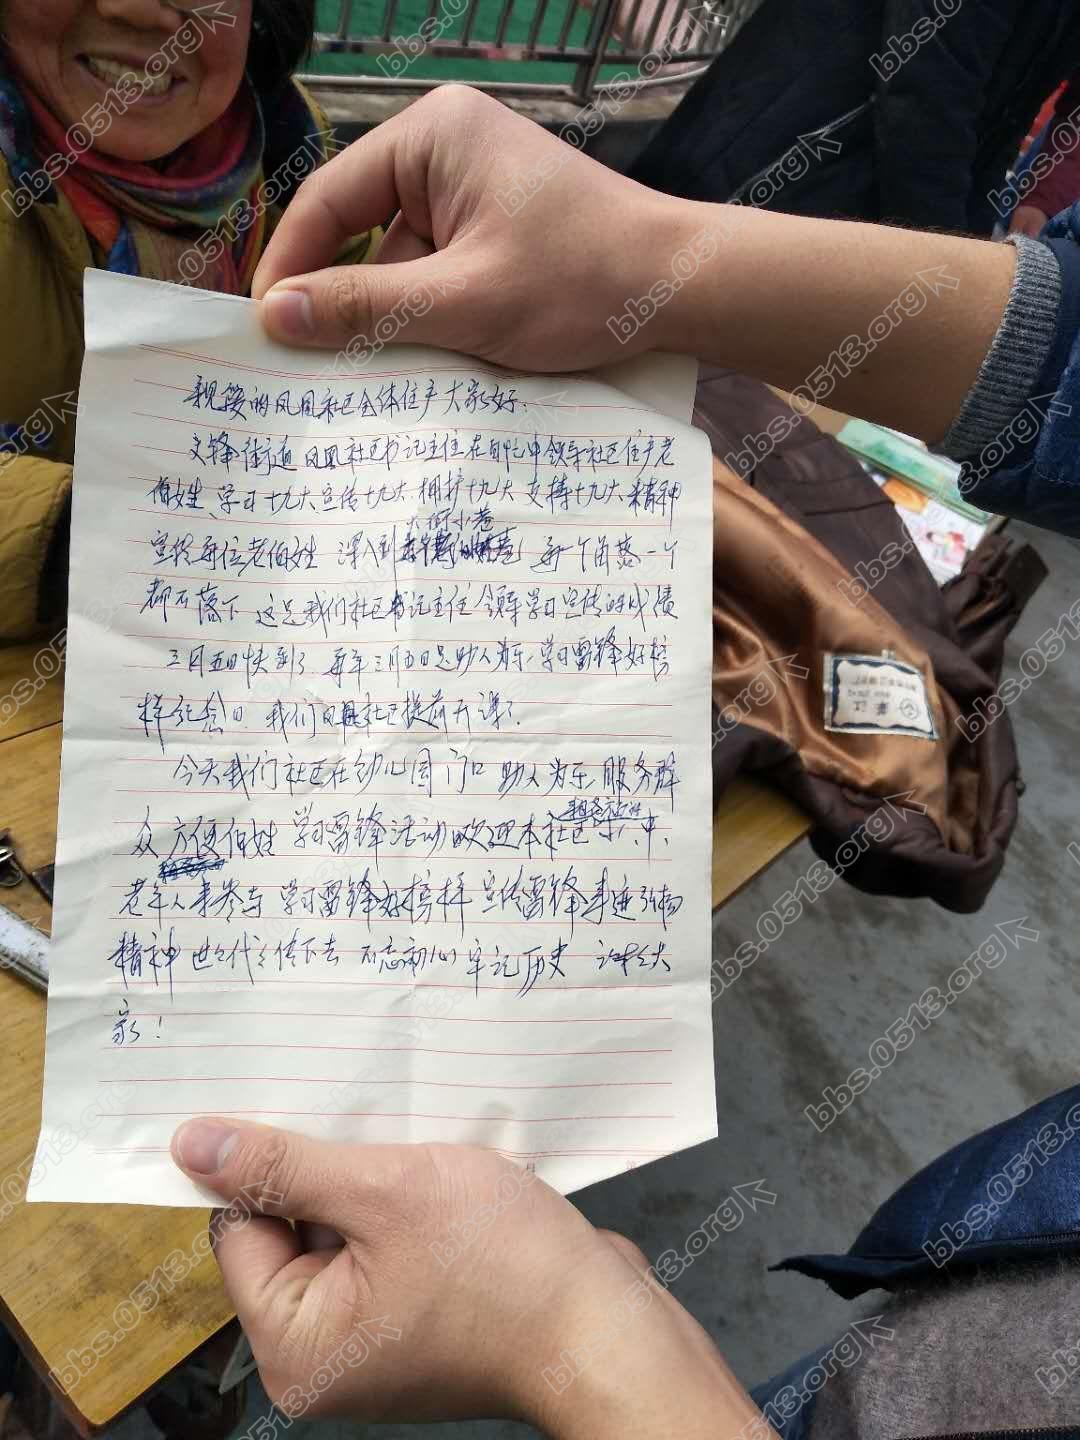 亲爱的凤凰社区全体住户大家好.
文锋街道凤凰社区书记主任在百忙中领导社区住户老
伯姓、学习十九大宣传十九大.拥护十九大 支持十九大.精神
大街小巷
宣授每位老伯姓 深入到 每一个角落一个
都不落下 这是我们社区书记主任领导学习宣传的成绩
三月五日快到了.每年三月五日是助人为乐.学习雷锋好榜
样纪念日.我们凤凰社区提前开课了.
今天我们社区在幼儿园门口 助人为乐.服务群
众方便伯姓 学习雷锋活动欢迎本社区 中.
老年人来参与 学习雷锋好榜样 宣传雷锋事迹弘扬
精神 世世代代传下去 不忘初心牢记历史 谢谢大
家!
bbs.0513.org